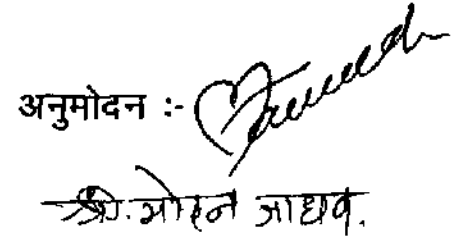 अनुमोदन :-
श्री. मोहन जाधव.